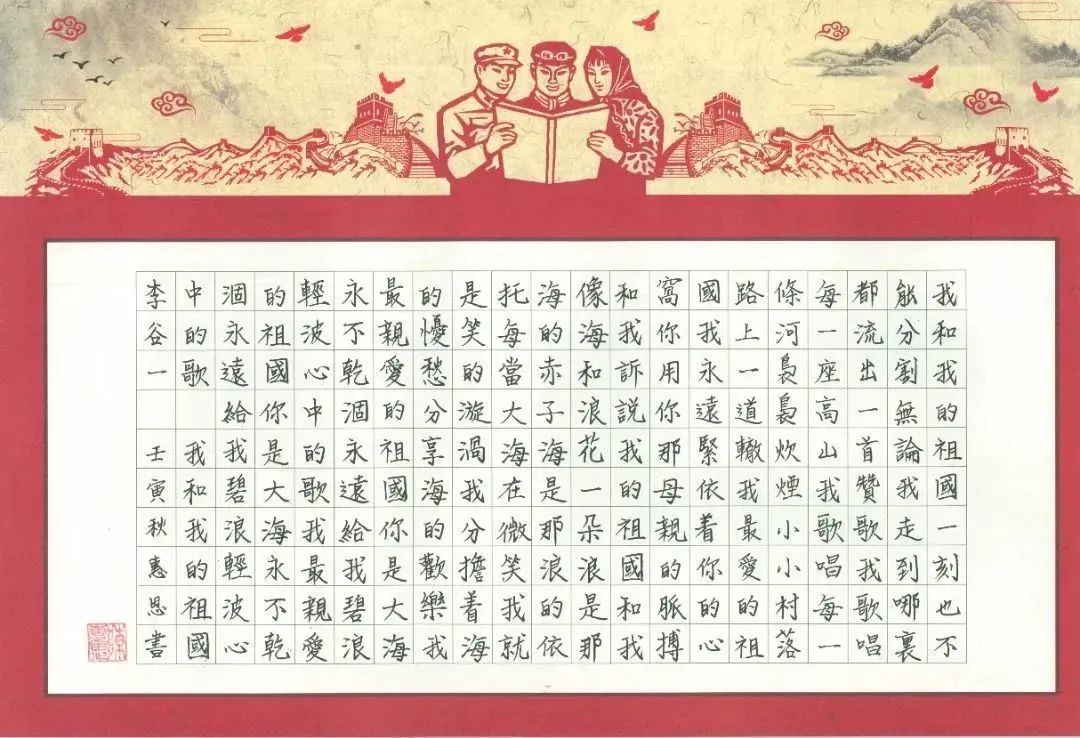 我和我的祖國一刻也不
能分割無論我走到哪裏
都流出一首贊歌我歌唱
每一座高山我歌唱每一
條河裊裊炊煙小小村落
路上一道轍我最愛的祖
國我永遠緊依着你的心
窩你用你那母親的脈搏
和我訴説我的祖國和我
像海和浪花一朵浪是那
海的赤子海是那浪的依
托每當大海在微笑我就
是笑的漩渦我分擔着海
的懮愁分享海的歡樂我
最親愛的祖國你是大海
永不乾涸永遠給我碧浪
輕波心中的歌我最親愛
的祖國你是大海永不乾
涸永遠給我碧浪輕波心
中的歌我和我的祖國
李谷一 壬寅秋惠恩書